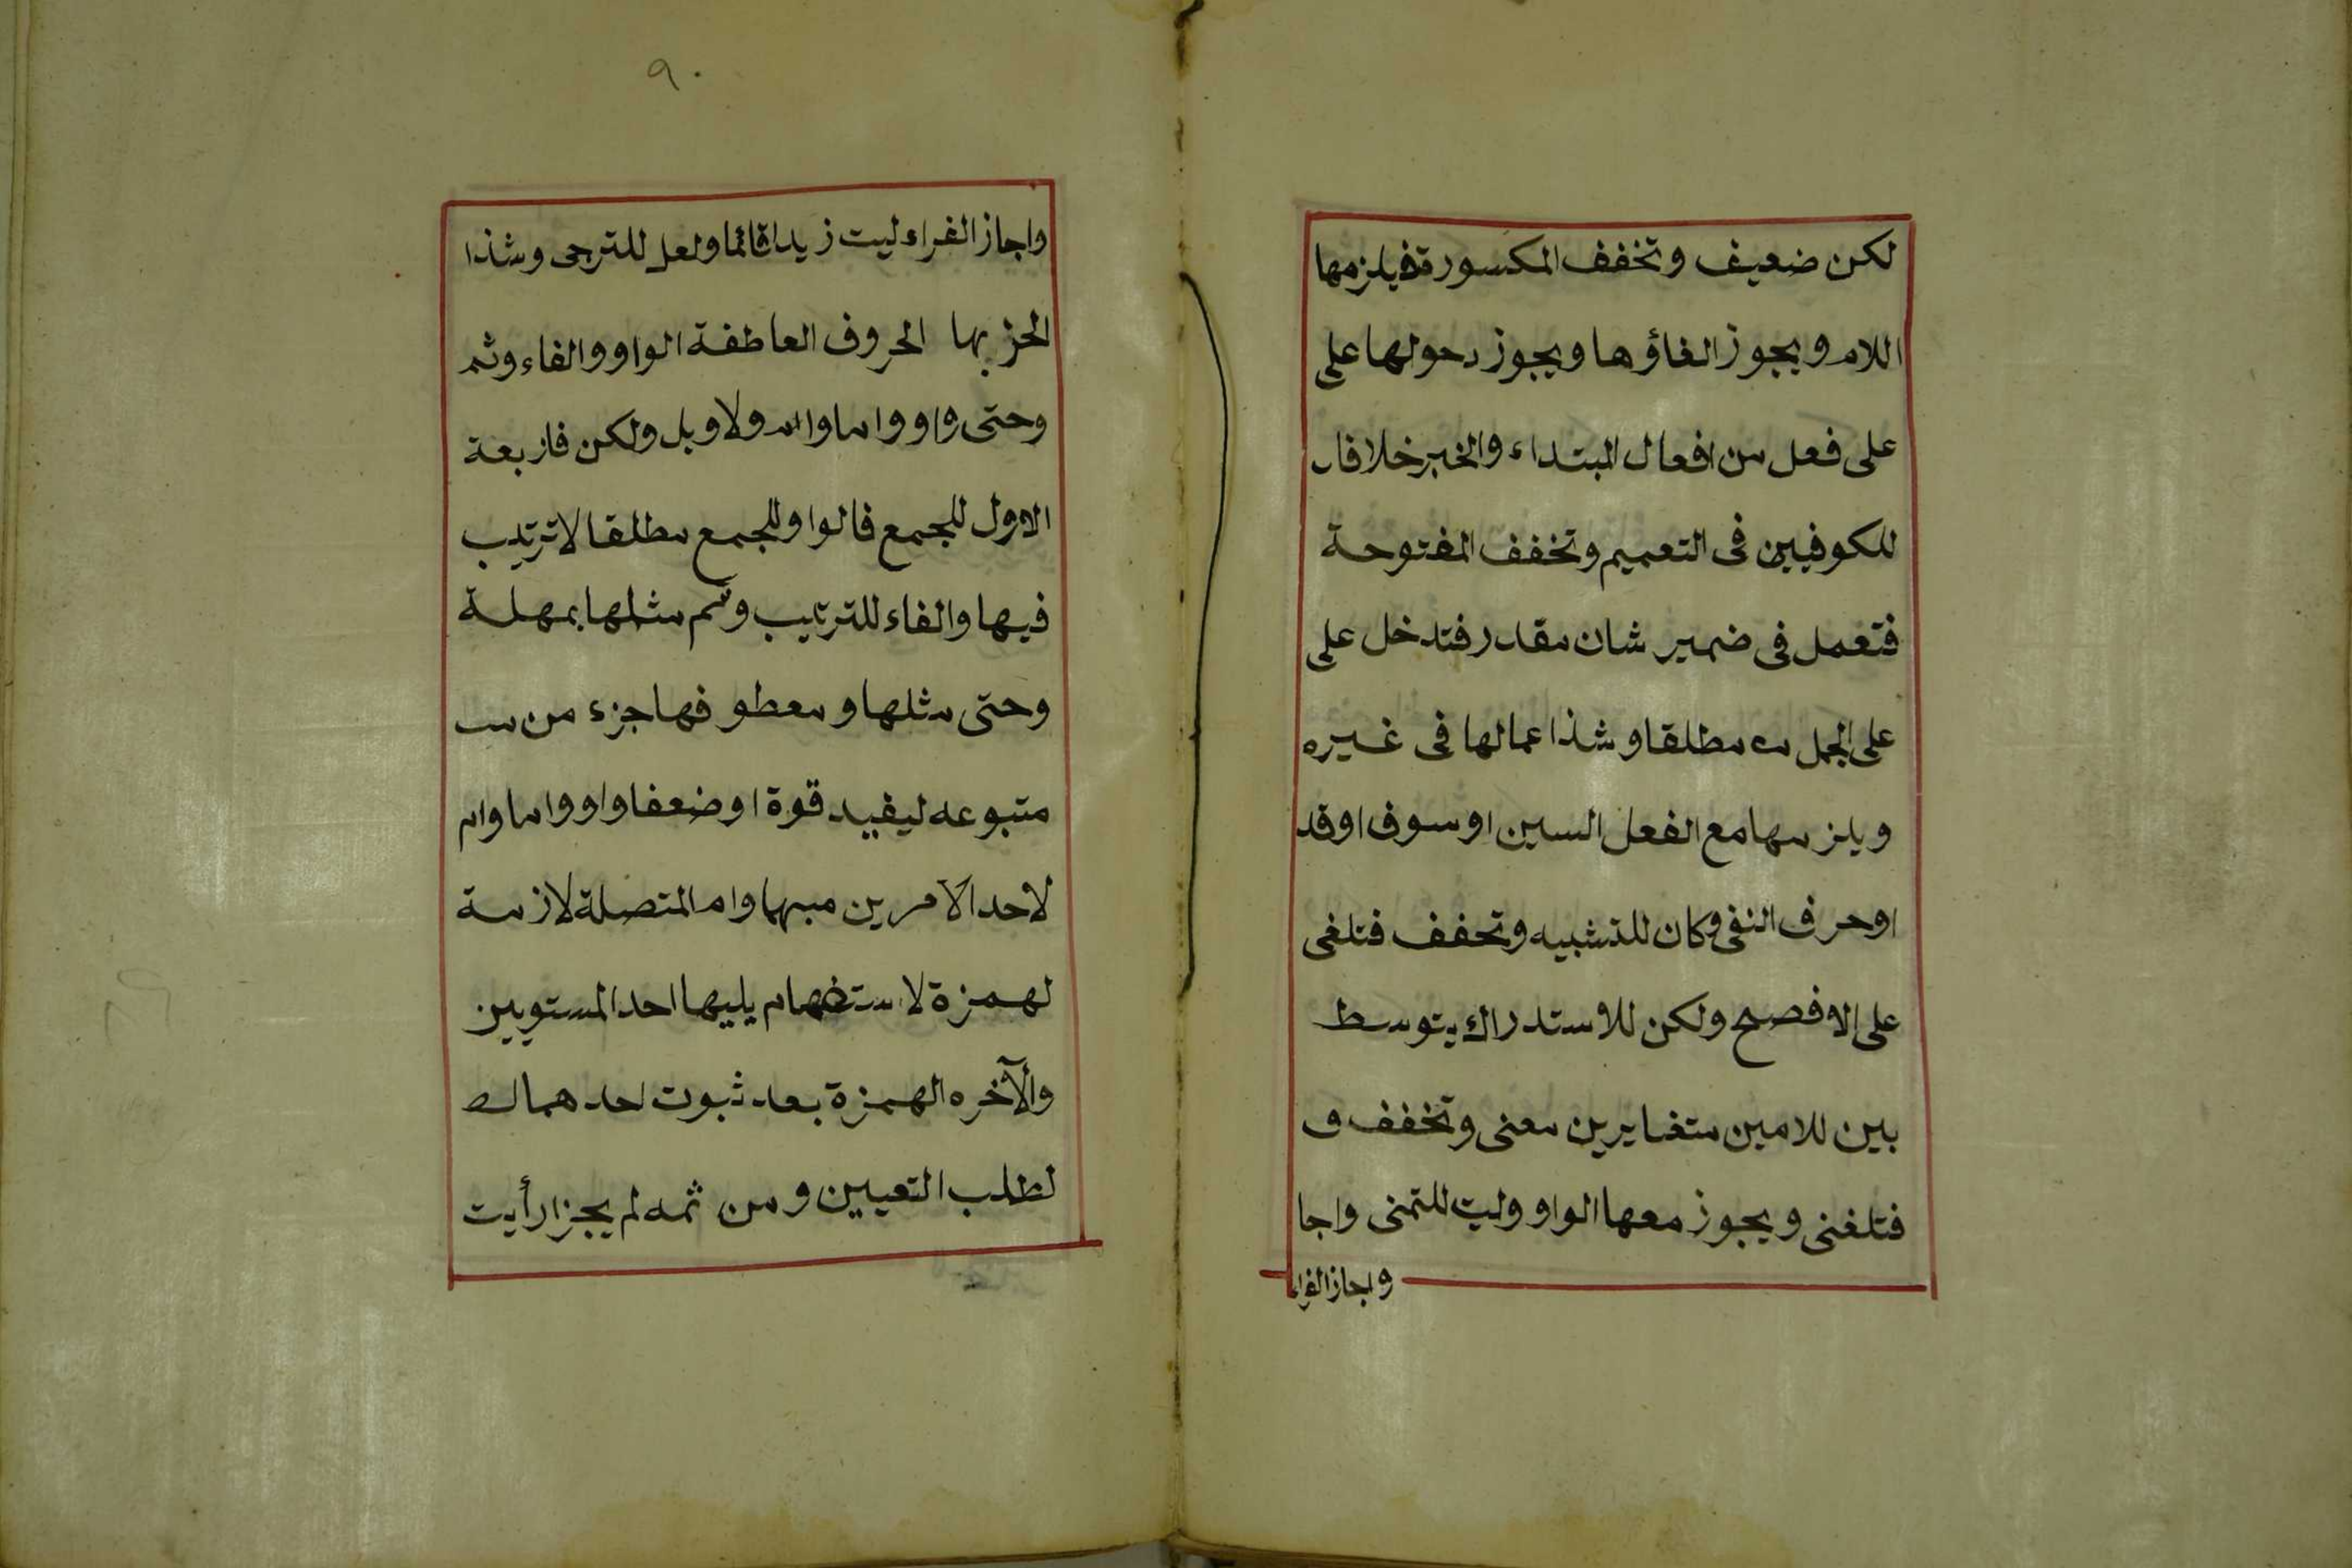 لكن ضعيف وتخفف المكسورة فيلزمها
اللام ويجوز الغاؤها ويجوز دحولها على
على فعل من افعال المبتداء والخبر خلافا
للكوفيين فى التعميم وتخفف المفتوحة
فتعمل فى ضمير شان مقدر فتدخل على
على الجمل مطلقا وشذا عمالها فى غيره
ويلزمها مع الفعل السين او سوف او قد
او حرف النفى وكان للتشبيه وتحفف فتلغى
على الافصح ولكن للاستدراك يتوسط
بين للامين متغايرين معنى وتخفف و
فتلغنى ويجوز معها الواو وليت للتمنى واجا
واجاز الفراء
٩٠
واجاز الفراء ليت زيدا قائما ولعل للترجى وشذا
الحز بها الحروف العاطفة الواو والفاء وثم
وحتى واو واما وام ولا وبل ولكن فاربعة
الاول للجمع فالوا وللجمع مطلقا لا ترتيب
فيها والفاء للترتيب وثم مثلها بمهلة
وحتى مثلها ومعطوفها جزء من
متبوعه ليفيد قوة او ضعفا واو واما وام
لاحد الامرين مبهما وام المتصلة لازمة
لهمزة لاستفهام يليها احد المستويين
والآخره الهمزة بعد ثبوت احدهما
لطلب التعيين ومن ثمه لم يجز ارأيت